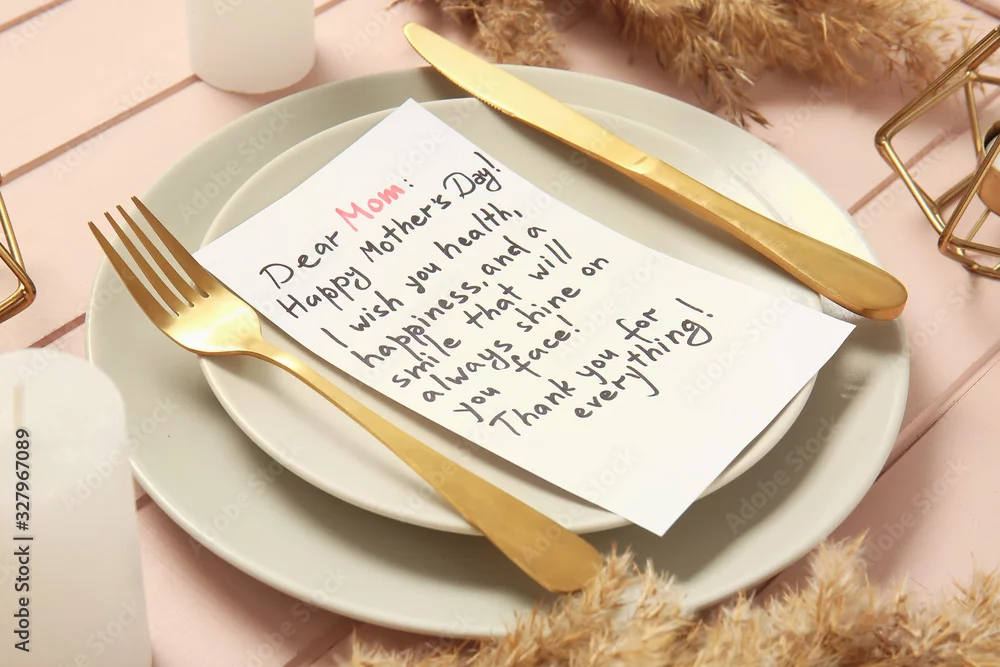 Dear Mom:
Happy Mother's Day!
I wish you health,
happiness, and a
smile that will
always shine on
you face!
Thank you for
everything!
Adobe Stock | #327967089